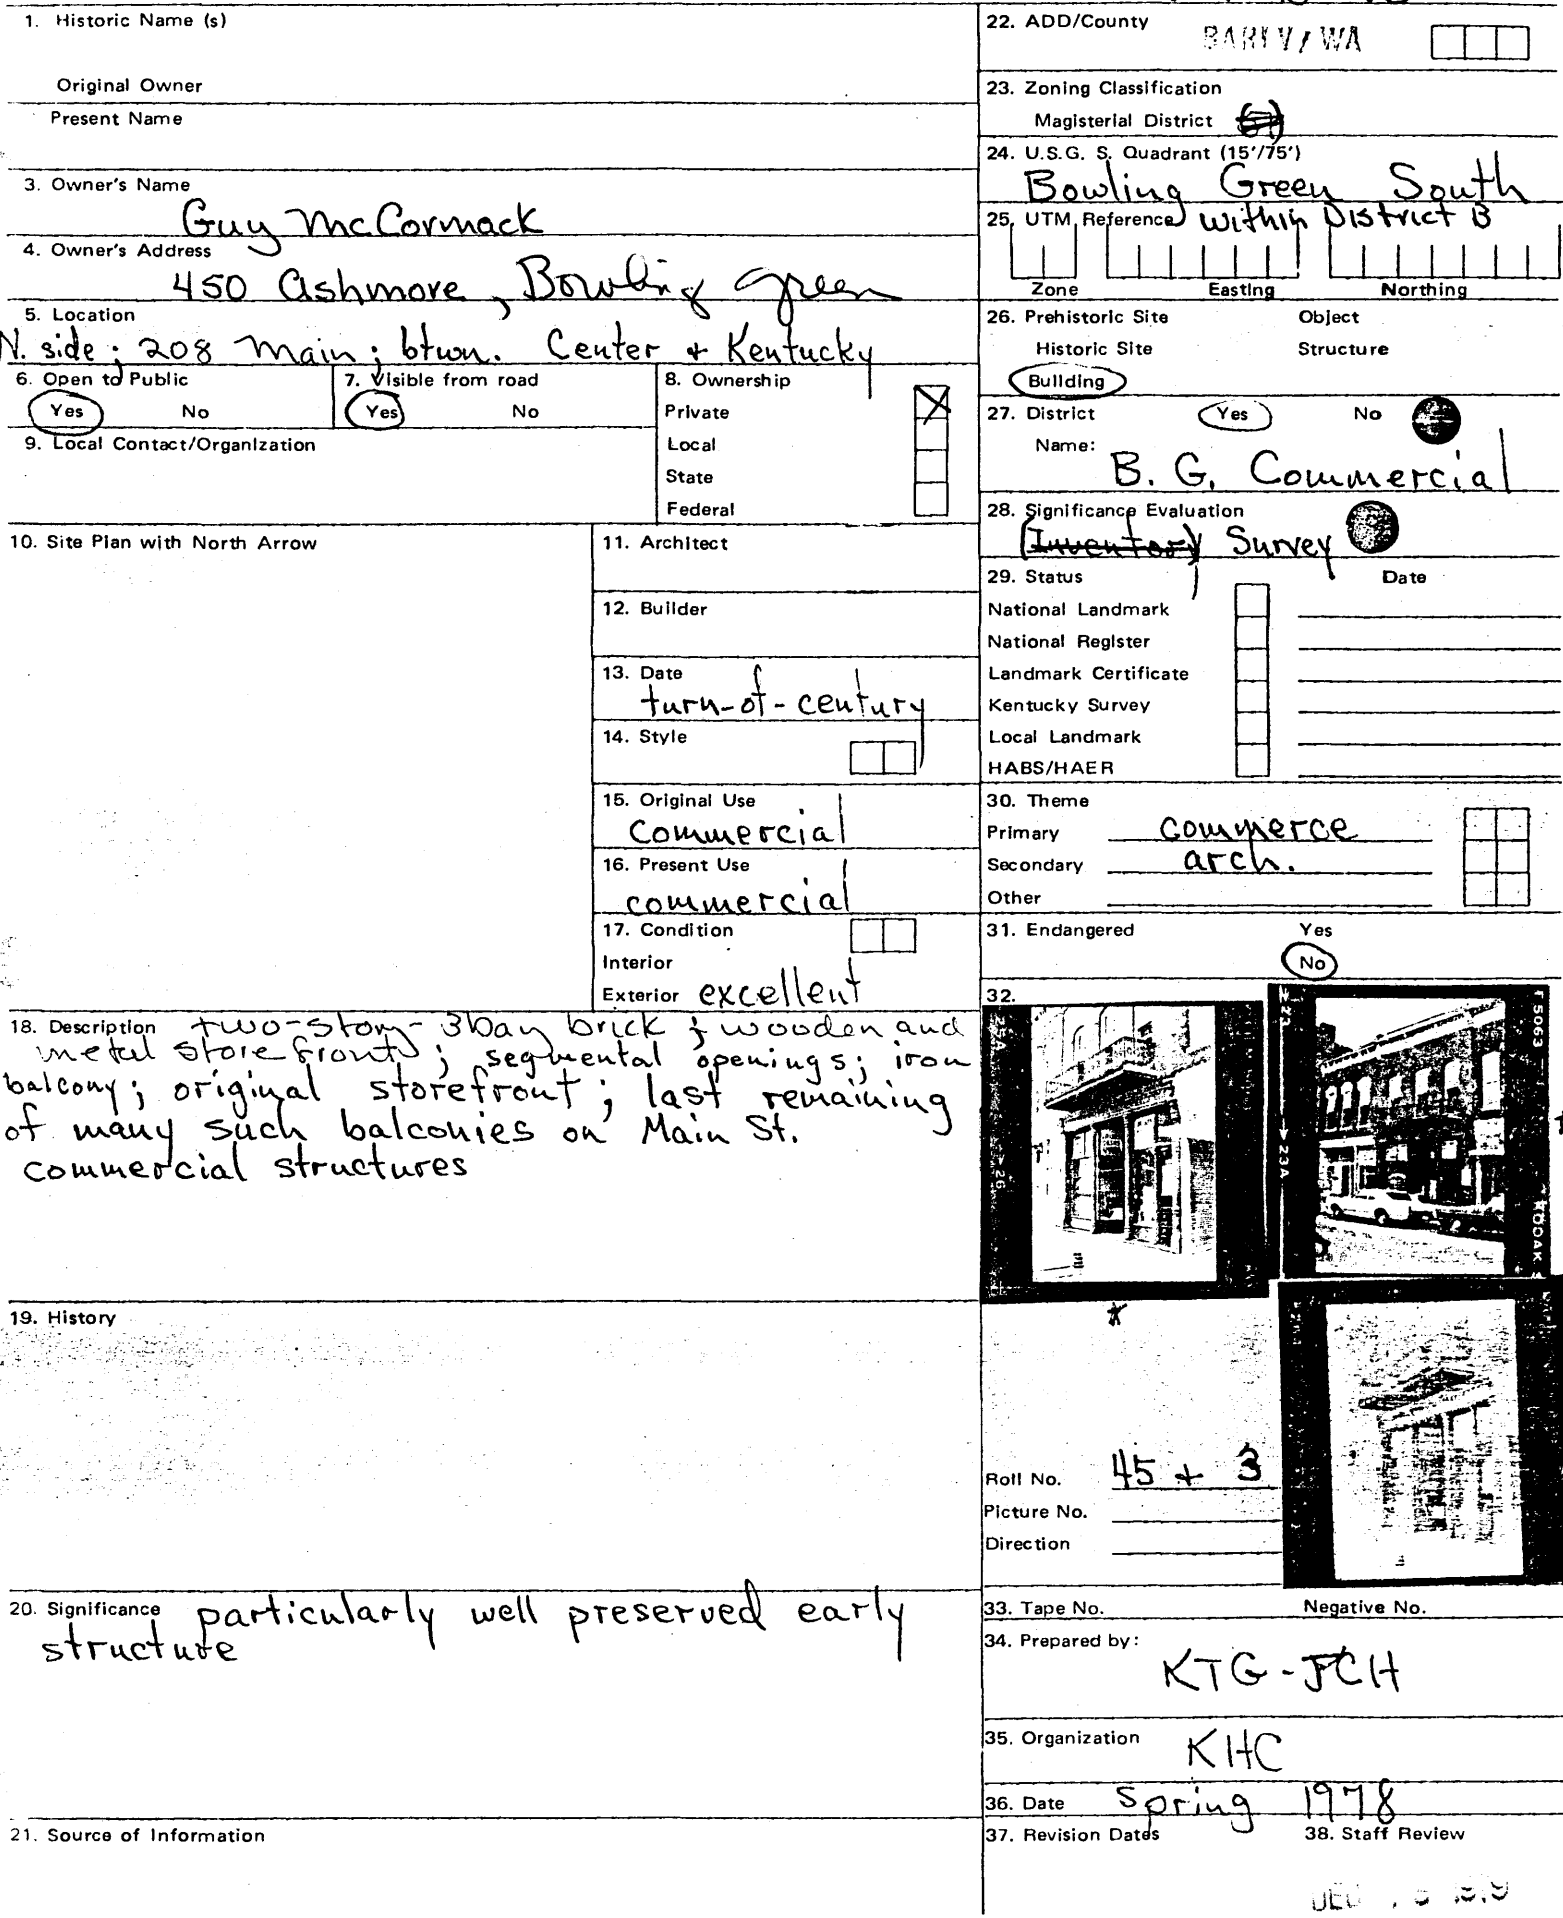 1. Historic Name (s)
Original Owner
Present Name
3. Owner's Name
Guy McCormack
4. Owner's Address
450 Ashmore, Bowling Green
5. Location
N. side; 208 Main; btwn. Center + Kentucky
6. Open to Public
Yes No
7. Visible from road
Yes No
8. Ownership
Private
Local
State
Federal
9. Local Contact/Organization
10. Site Plan with North Arrow
11. Architect
12. Builder
13. Date
turn-of-century
14. Style
15. Original Use
commercial
16. Present Use
commercial
17. Condition
Interior
Exterior excellent
18. Description two-story-3bay brick; wooden and
metal storefront; segmental openings; iron
balcony; original storefront; last remaining
of many such balconies on Main St.
commercial structures
19. History
20. Significance particularly well preserved early
structure
21. Source of Information
22. ADD/County
WA
23. Zoning Classification
Magisterial District
24. U.S.G. S. Quadrant (15'/75')
Bowling Green South
25. UTM Reference within District B
Zone Easting Northing
26. Prehistoric Site Object
Historic Site Structure
Building
27. District Yes No
Name:
B. G. Commercial
28. Significance Evaluation
(Inventory) Survey
29. Status Date
National Landmark
National Register
Landmark Certificate
Kentucky Survey
Local Landmark
HABS/HAER
30. Theme
Primary commerce
Secondary arch.
Other
31. Endangered Yes
No
32.
5063
23A
KODAK
Roll No. 45 + 3
Picture No.
Direction
33. Tape No. Negative No.
34. Prepared by:
KTG-JCH
35. Organization KHC
36. Date Spring 1978
37. Revision Dates 38. Staff Review